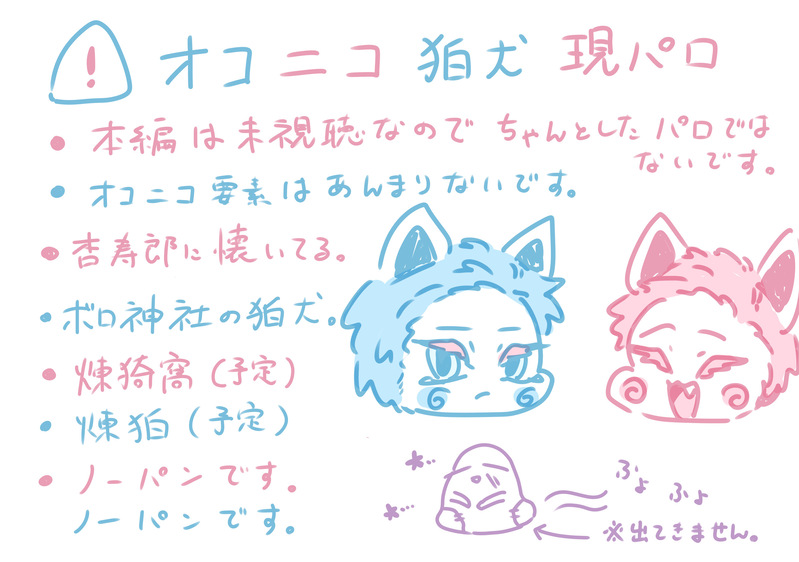 ! オコニコ 狛犬 現パロ
● 本編は未視聴なので ちゃんとした パロでは
ないです。
● オコニコ要素はあんまりないです。
● 杏寿郎に懐いてる。
● ボロ神社の狛犬。
● 煉猗窩(予定)
● 煉狛(予定)
● ノーパンです。
ノーパンです。
ふょ ふょ
※出てきません。